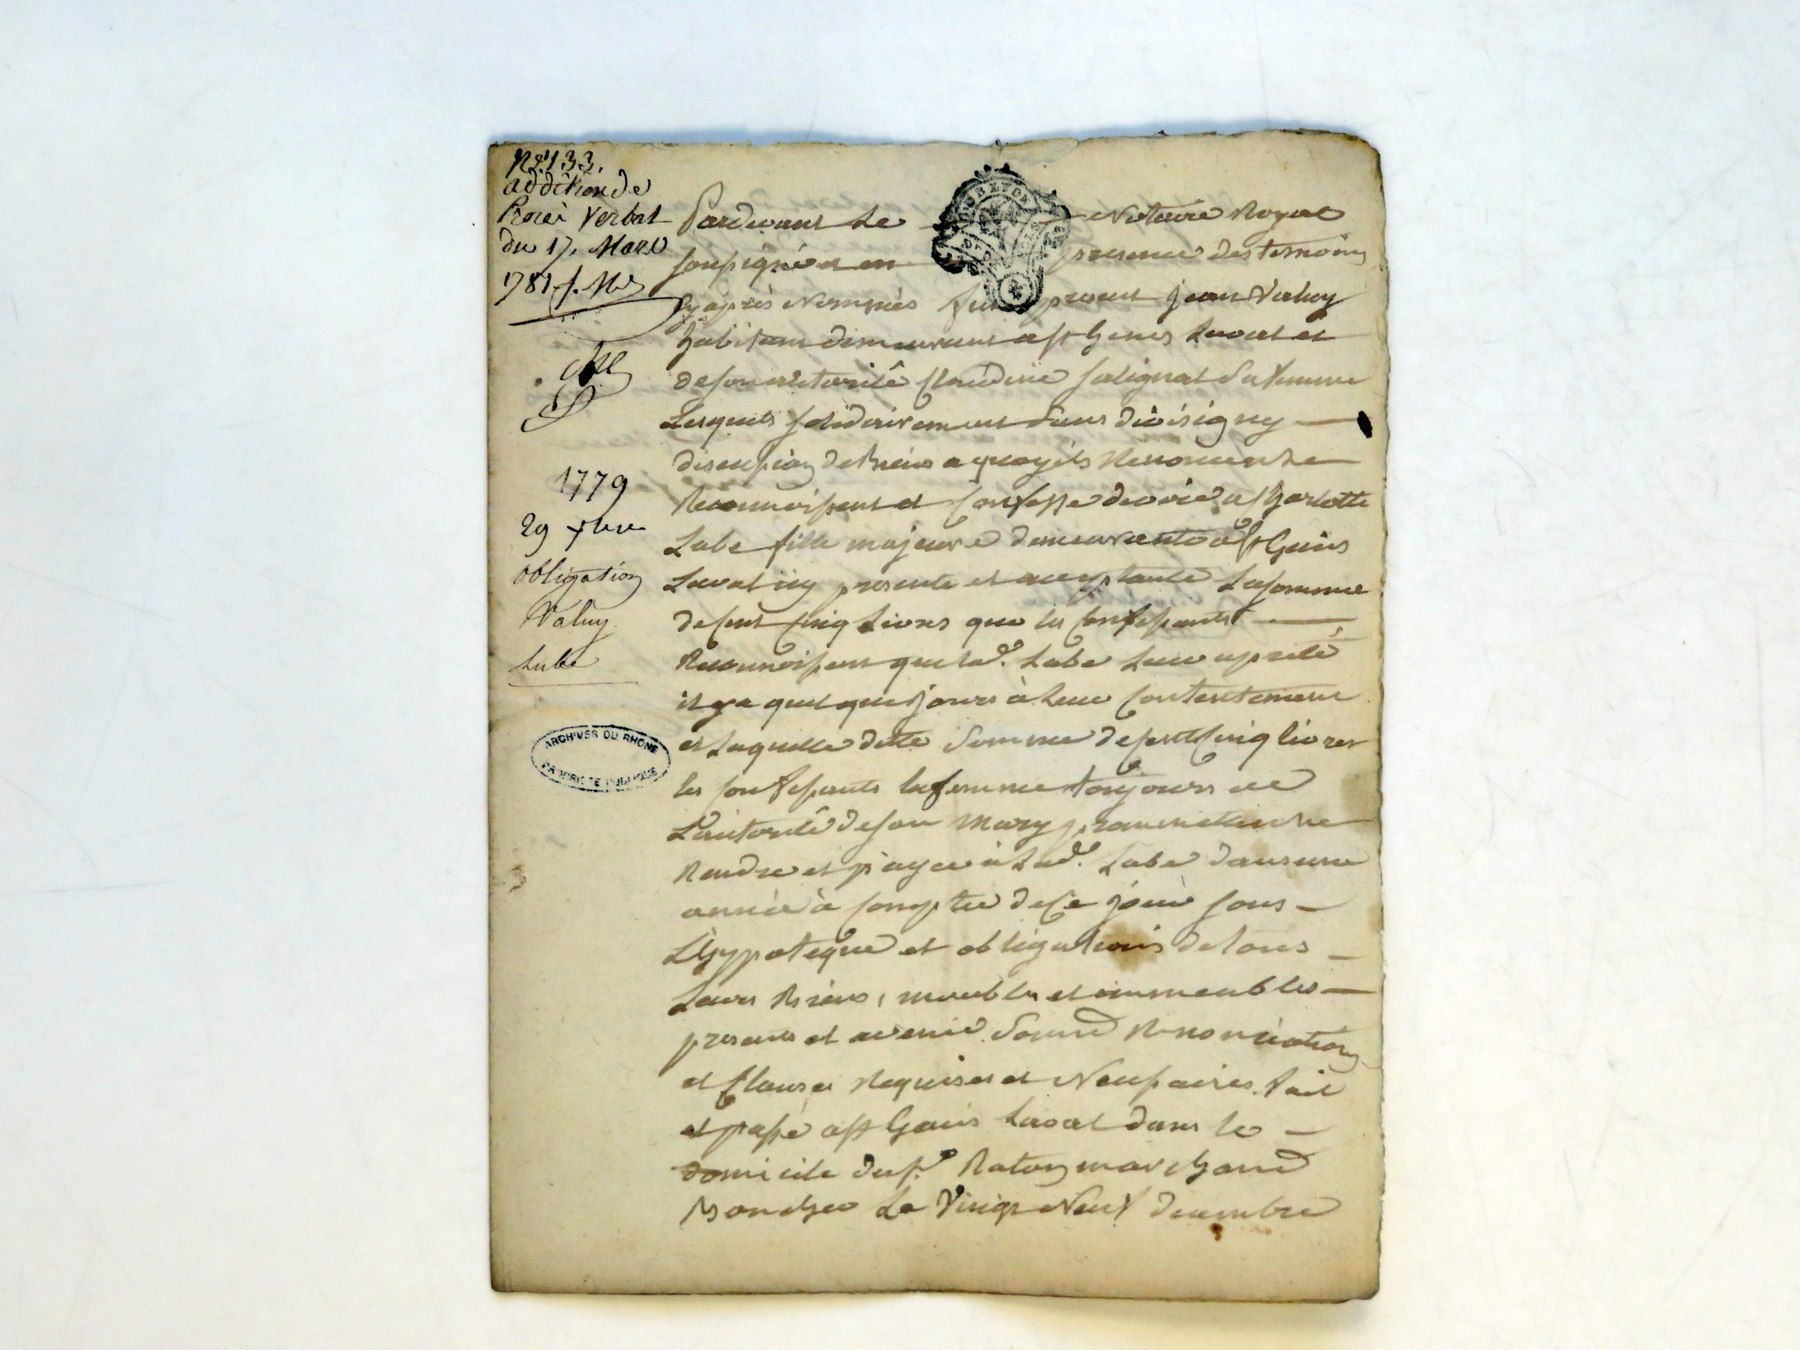 No. 133.
addition de
Procès Verbal
du 17. Mars
1781
1779
29 xbre
obligation
Valuy
Labe
ARCHIVES DU RHÔNE
PROPRIÉTÉ PUBLIQUE
Pardevant Le Notaire Royal
soussigné et en presence des temoins
cy après Nommés fut present Jean Valuy
habitant demeurant a st Genis Laval et
de son autorité Claudine sa femme
Lesquels solidairement sans division ny
discution de Biens a quoy ils Renoncent
Reconnoissent et Confesse devoir a Charlotte
Labe fille majeure demeurante a st Genis
Laval icy presente et acceptante La somme
de cent cinq Livres que les confessants
Reconnoissent que lad. Labe Leur a preté
il y a quelques jours à Leur Contentement
et Laquelle dite somme de cent cinq livres
les confessants la femme toujours de
L'autorité de son Mary promettent
Rendre et payer à Lad. Labe dans une
année à compter de Ce jour sous
L'hypoteque et obligations de tous
Leurs Biens, meubles et immeubles
presents et avenir. Renonciation
et Clauses Requises et Necessaires. fait
et passé a st Genis Laval dans le
domicile du sr. Raton marchand
Boucher Le Vingt Neuf decembre